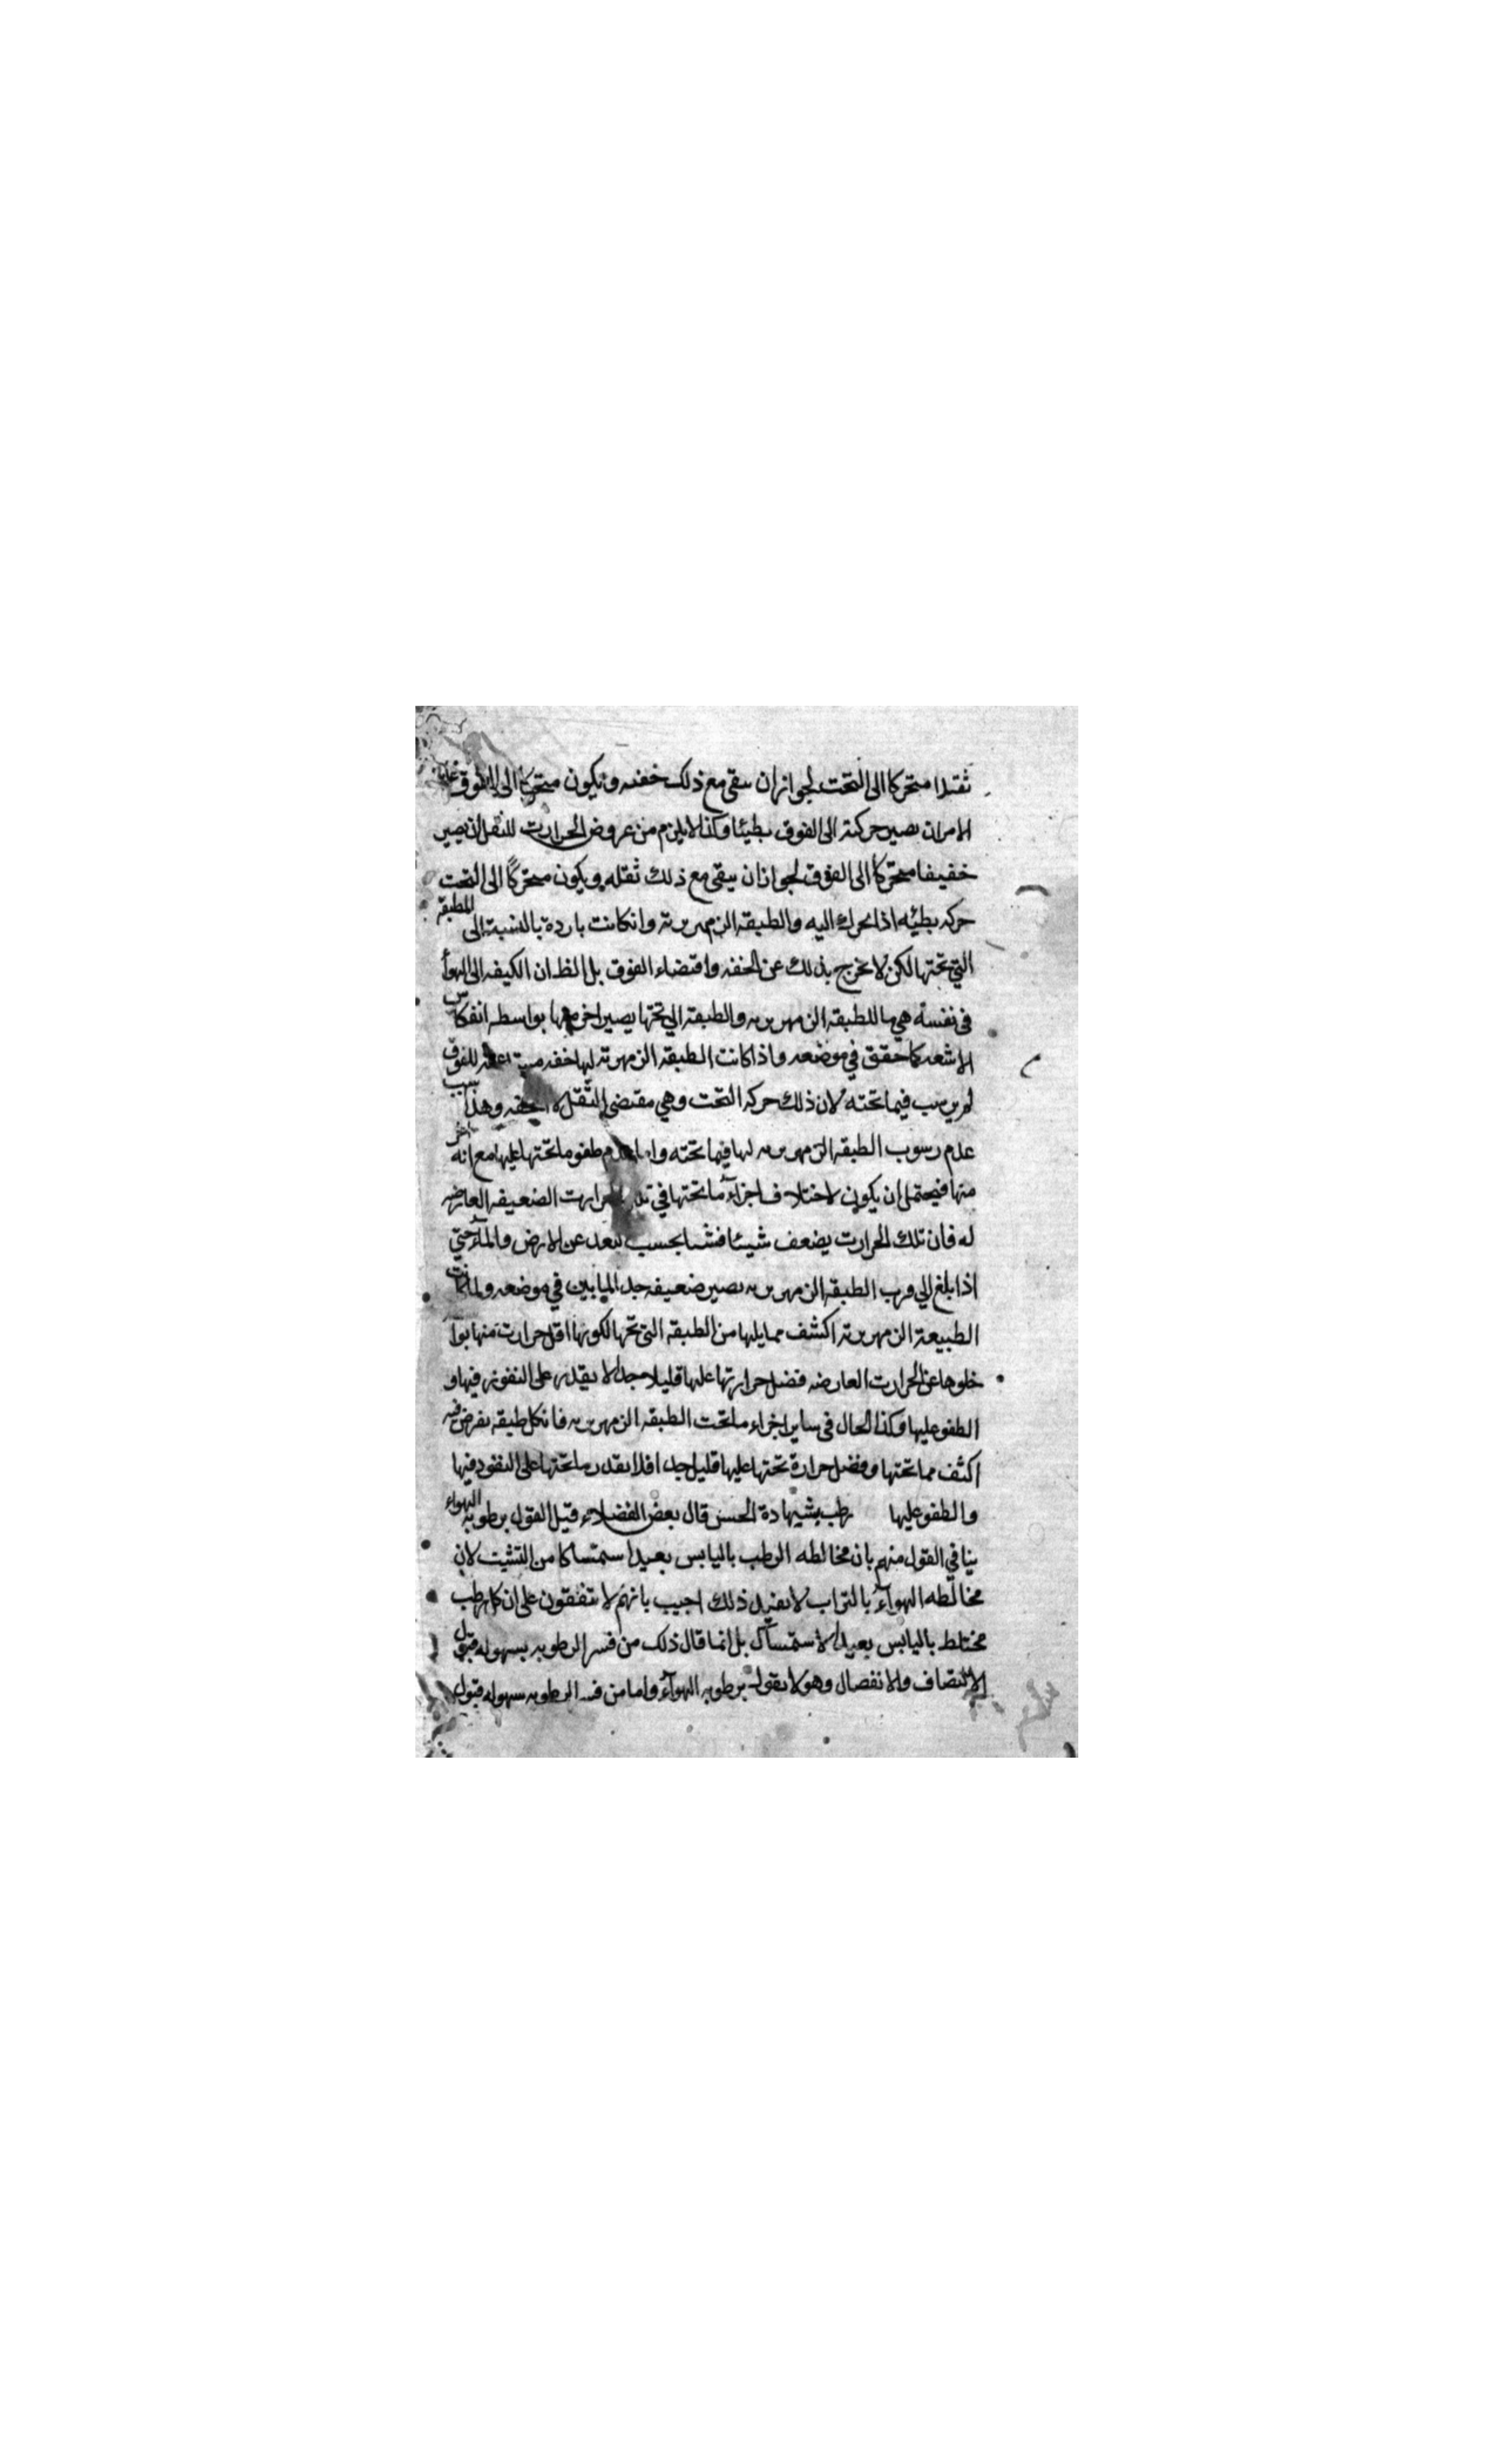 ثقيلا متحركا الى التحت لجواز ان يبقى مع ذلك خفته ويكون متحركا الى الفوق غاية
الامر ان يصير حركته الى الفوق بطيئا وكذا لا يلزم من عروض الحرارت للثقل ان يصير
خفيفا متحركا الى الفوق لجواز ان يبقى مع ذلك ثقله ويكون متحركا الى التحت
حركه بطيئه اذا تحرك اليه والطبقه الزمهريرته وانكانت باردة بالنسبة الى الطبقه
التي تحتها لكن لا تخرج بذلك عن الخفه واقتضاء الفوق بل الظ ان الكيفه الى الهوأ
في نفسه هي ما للطبقه الزمهريريه والطبقه التي تحتها يصير اخر منها بواسطه انفكاس
الاشعه كما تحقق في موضعه واذا كانت الطبقه الزمهرته لها خفه للفوق
لم يرسب فيما تحته لان ذلك حركه التحت وهي مقتضى الثقل لا الخفه وهذا سبب
عدم رسوب الطبقه الزمهريريه لها فيما تحته واما عدم طفو ما تحتها عليها مع انه اخر
منها فيحتمل ان يكون لاختلاف اجزاء ما تحتها في تلك الحرارت الضعيفه العارضه
له فان تلك الحرارت يضعف شيئا فشيا بحسب البعد عن الارض والمآء حتي
اذا بلغ الي قرب الطبقه الزمهريريه يصير ضعيفه جدا لما بين في موضعه ولما كانت
الطبيعة الزمهريرته اكشف مما يليها من الطبقه التي تحتها لكونها اقل حرارت منها بوا
خلوها عن الحرارت العارضه فضل حرارتها عليها قليلا جدا لا يقدر على النفوذ فيها و
الطفو عليها وكذا الحال في ساير اجزاء ما تحت الطبقه الزمهريريه فانكل طبقه يفرض فيه
اكثف مما تحتها وفضل حرارة تحتها عليها قليل جدا فلا يقدر ما تحتها على النفود فيها
والطفو عليها رطب بشهادة الحس قال بعض الفضلاء قيل القول برطوبه الهواء
ينافي القول منهم بان مخالطه الرطب باليابس يعيدا ستمساكا من التشتت لان
مخالطه الهوآء بالتراب لا يفيد ذلك اجيب بانهم لا يتفقون على ان كل رطب
مختلط باليابس يعيد الاستمساك بل انما قال ذلك من فسر الرطوبه بسهوله قبول
الالتصاف والانفصال وهو لا يقول برطوبه الهوآء واما من فسر الرطوبه بسهوله قبول